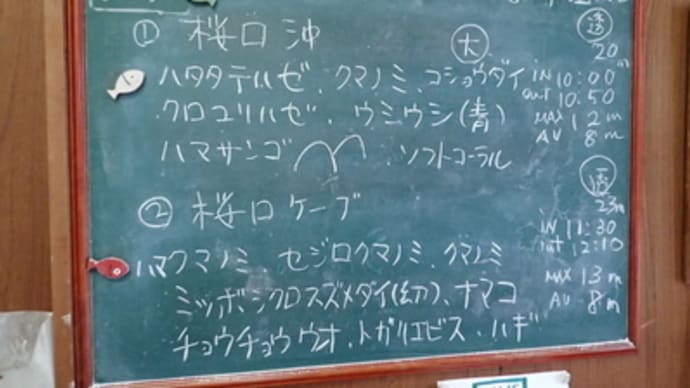 ① 桜口沖 大 透
20m
ハタタテハゼ、クマノミ、コショウダイ IN 10:00
クロユリハゼ、ウミウシ(青) out 10:50
MAX 12m
ハマサンゴ 、ソフトコーラル AV 8m
② 桜口ケーブ 透
23m
IN 11:30
ハマクマノミ セジロクマノミ、クマノミ out 12:10
ミツボシクロスズメダイ(幼)、ナマコ MAX 13m
チョウチョウウオ、トガリエビス、ハギ AV 8m